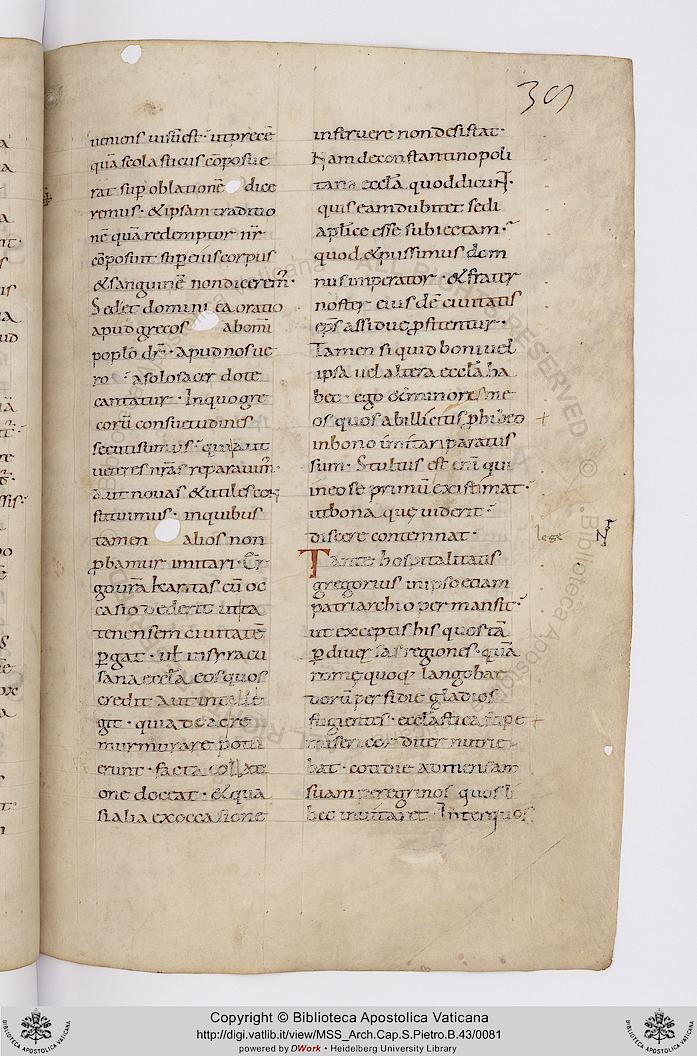 39
ueniens uisū est · ut precē
quā scolasticus cōposue
rat sup̄ oblationē dice
remus · & ipsam traditio
nē quā redemptor nr̄
cōposuit sup̄ eius corpus
& sanguinē non dicerem̄ ·
Sed et domini ca oratio
apud grecos ab omi
poplo dr̄ · apud nos ue
ro a solo sacer dote
cantatur · In quo gre
corū consuetudines
secuti sumus · qui aut
ueteres nr̄as reparauim̄ ·
aut nouas & utiles con
stituimus · in quibus
tamen alios non
p̄bamur imitari · Er
go ūra karitas cū oc
casio dederit ut ca
tenensem ciuitatē
p̄gat · ul in syracu
sana eccl̄a eos quos
credit aut intelle
git · quia de ac re
murmurare potu
erunt · facta collati
one doceat · & qua
si alia ex occasione
instruere non desistat ·
Nam de constantinopoli
tana eccl̄a quod dicun̄t ·
quis eam dubitet sedi
aplīce esse subiectam ·
quod & piissimus dom
nus imperator · & frater
noster eius dē ciuitatis
ep̄s assidue p̄fitentur ·
Tamen si quid boni uel
ipsa uel altera eccl̄a ha
bet · ego & minores me
os quos ab illicitis p̄hibeo
in bono imitari paratus
sum · Stultus est eni qui
in eo se primū existimat ·
ut bona que uiderit ·
discere contemnat ·
Tante hospitalitatis
gregorius in ipso etiam
patriarchio per mansit ·
ut exceptis his quos tā
p̄ diuersas regiones · quā
rome quoq; langobar
dorū perfidie gladios
fugientes · eccl̄astica supe
misericorditer nutrie
bat · cotidie ad mensam
suam peregrinos quos l
bec inuitaret · Inter quos
lege
Copyright © Biblioteca Apostolica Vaticana
http://digi.vatlib.it/view/MSS_Arch.Cap.S.Pietro.B.43/0081
powered by DWork • Heidelberg University Library